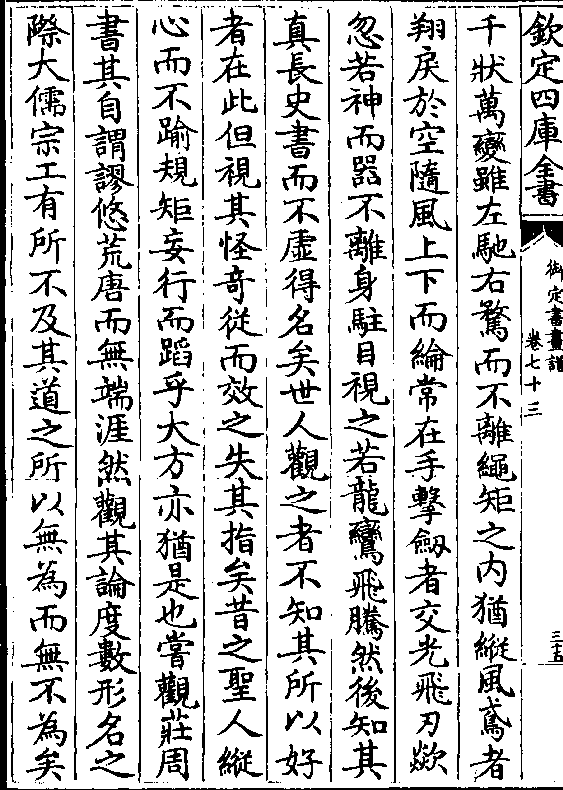 欽定四庫全書
御定書畫譜
卷七十三
三十五
千狀萬變雖左馳右騖而不離繩矩之内猶縱風鳶者
翔戾於空隨風上下而綸常在手擊劒者交光飛刃歘
忽若神而器不離身駐目視之若龍鸞飛騰然後知其
真長史書而不虛得名矣世人觀之者不知其所以好
者在此但視其怪奇從而效之失其指矣昔之聖人縱
心而不踰規矩妄行而蹈乎大方亦猶是也嘗觀莊周
書其自謂謬悠荒唐而無端涯然觀其論度數形名之
際大儒宗工有所不及其道之所以無為而無不為矣